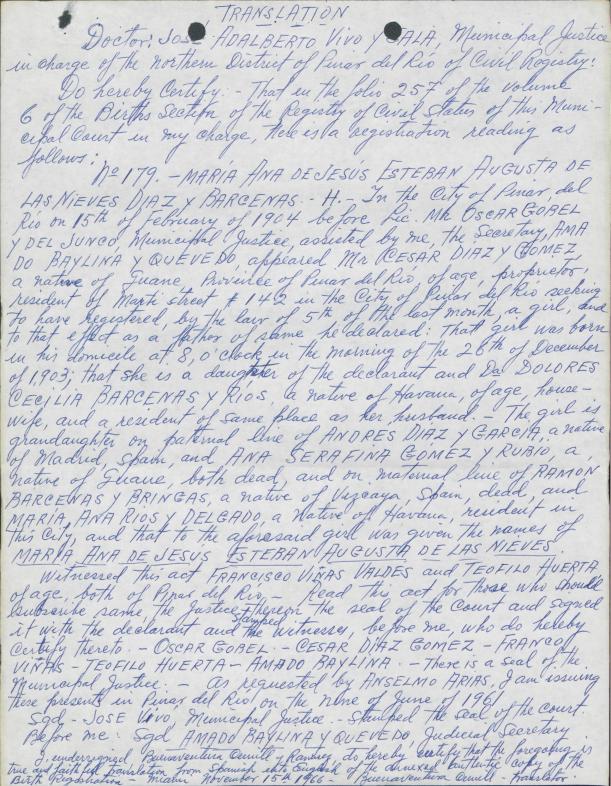 TRANSLATION
Doctor: José ADALBERTO VIVO Y SALA, Municipal Justice
in charge of the northern District of Pinar del Río of Civil Registry:
Do hereby Certify: - That in the folio 257 of the volume
6 of the Births Section of the Registry of Civil Status of this Muni-
cipal Court in my charge, there is a registration reading as
follows:
Nº 179. - MARÍA ANA DE JESÚS ESTEBAN AUGUSTA DE
LAS NIEVES DIAZ Y BARCENAS. - H. - In the City of Pinar, del
Río on 15th of February of 1904 before Lic. Mr OSCAR GOBEL
Y DEL JUNCO, Municipal Justice, assisted by me, the Secretary, AMA
DO BAYLINA Y QUEVEDO, appeared Mr CESAR DIAZ Y GOMEZ,
a native of Guane, Province of Pinar del Río, of age, proprietor,
resident of Marti street # 142 in the City of Pinar del Río seeking
to have registered, by the law of 5th of the last month, a girl, and
to that effect as a father of same he declared: That girl was born
in his domicile at 8, o'clock in the morning of the 26th of December
of 1903; that she is a daughter of the declarant and Da DOLORES
CECILIA BARCENAS Y RIOS, a native of Havana, of age, house-
wife, and a resident of same place as her husband. - The girl is
grandaughter on paternal line of ANDRES DIAZ Y GARCIA, a native
of Madrid, Spain, and ANA SERAFINA GOMEZ Y RUBIO, a
native of Guane, both dead, and on maternal line of RAMON
BARCENAS Y BRINGAS, a native of Vizcaya, Spain, dead, and
MARÍA, ANA RIOS Y DELGADO, a native of Havana, resident in
this City, and that to the aforesaid girl was given the names of
MARÍA ANA DE JESUS ESTEBAN AUGUSTA DE LAS NIEVES.
Witnessed this act FRANCISCO VIÑAS VALDES and TEOFILO HUERTA
of age, both of Pinar del Río, - Read this act for those who should
subscribe same the Justice stamped thereon the seal of the Court and signed
it with the declarant and the witnesses, before me, who do hereby
certify thereto. - OSCAR GOBEL - CESAR DIAZ GOMEZ - FRANCO
VIÑAS - TEOFILO HUERTA - AMADO BAYLINA. - There is a seal of the
Municipal Justice. - As requested by ANSELMO ARIAS, I am issuing
these presents in Pinar del Río, on the nine of June of 1961
Sgd - JOSE VIVO, Municipal Justice. - Stamped the seal of the court.
Before me: Sgd AMADO BAYLINA Y QUEVEDO, Judicial Secretary
I, undersigned, Buenaventura y do hereby certify that the foregoing is
true and faithful translation from Spanish into English of the annexed authentic copy of the
Birth Registration - Miami November 15th 1966 - Buenaventura - Translator.